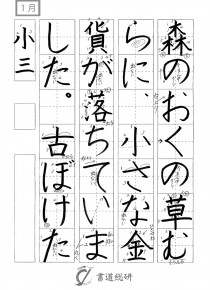 1月
森のおくの草む
らに、小さな金
貨が落ちていま
した。古ぼけた
小三
書道総研